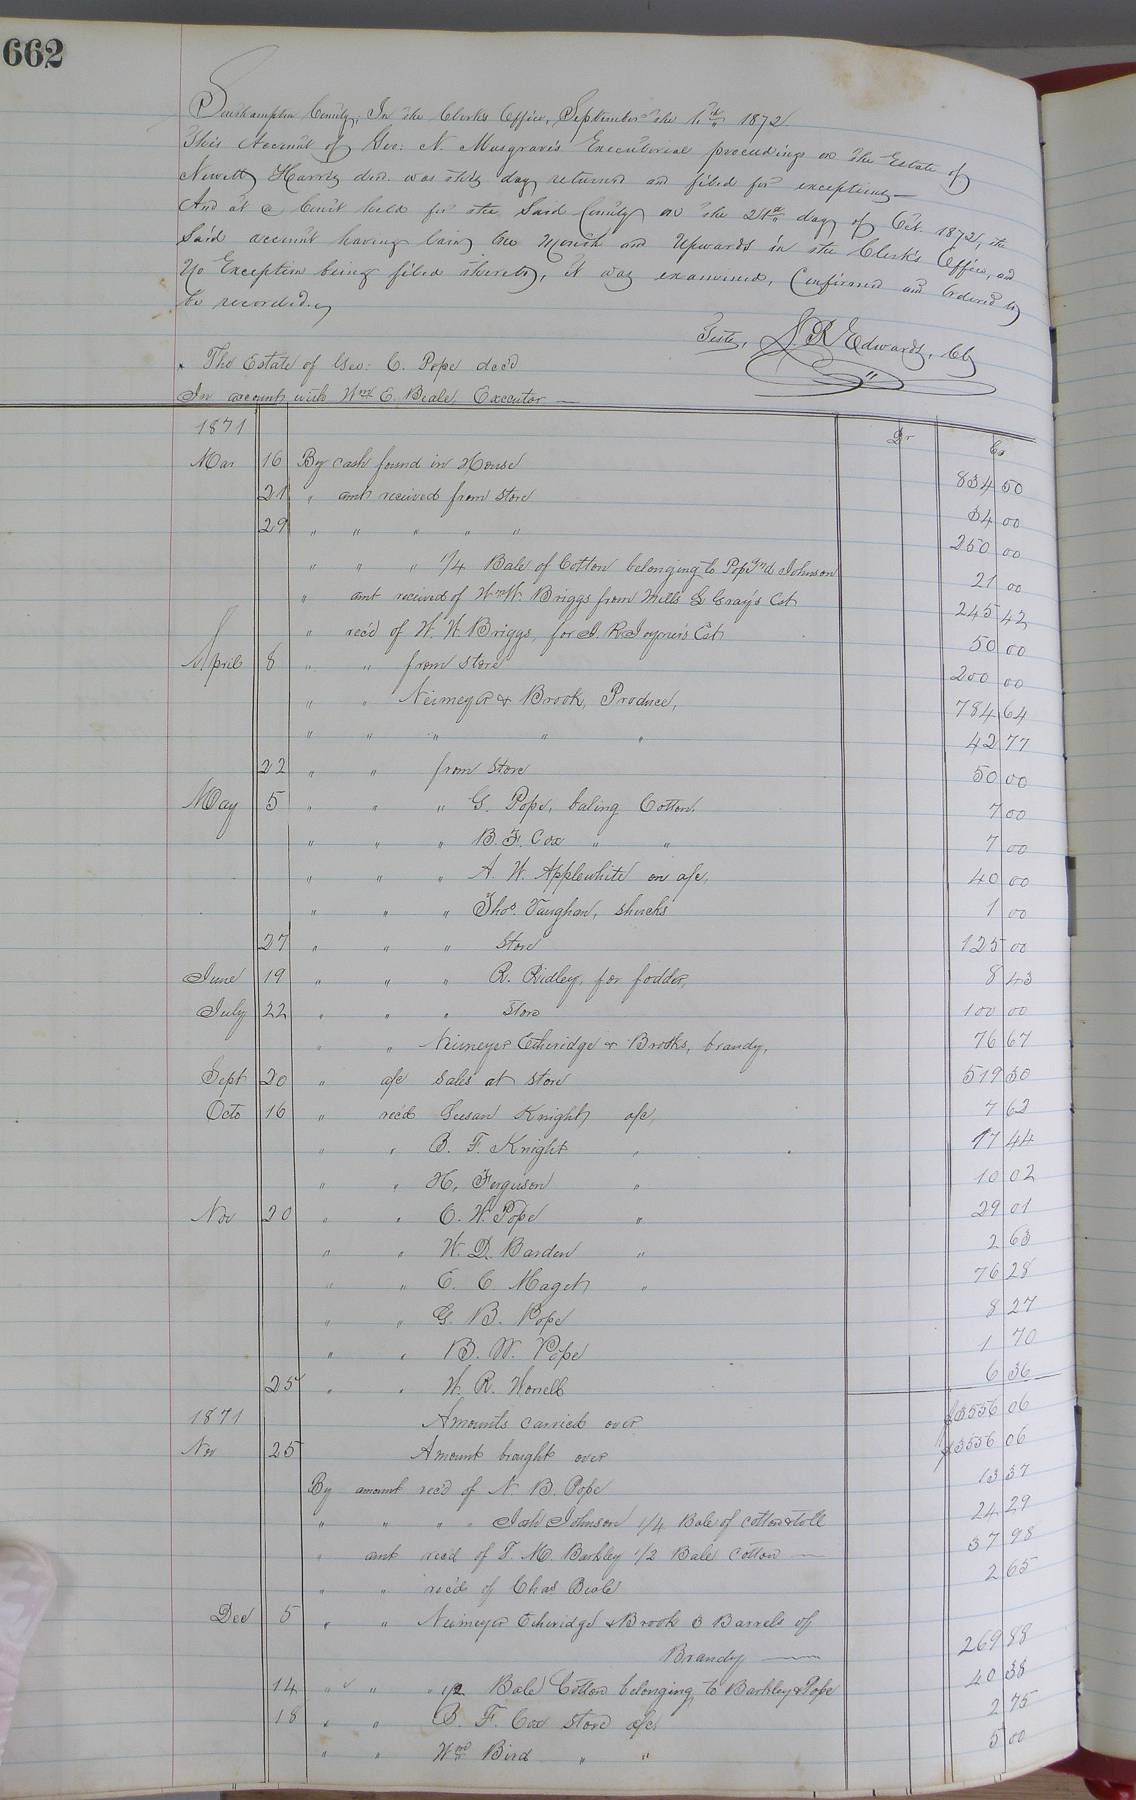 662
Southampton County; In the Clerk's Office, September the 1872
This Account of Geo: N. Musgrave's Executorial proceedings on the Estate of
Newett Harris decd. was this day returned and filed for exceptions—
And at a Court held for the Said County on the 21st day of Oct. 1872, the
Said account having lain One Month and Upwards in the Clerk's Office, and
No Exception being filed thereto, it was examined, Confirmed and Ordered to
be recorded.
Teste, L. R. Edwards, Clk
The Estate of Geo: C. Pope decd
In account with Wm E. Beale Executor —
1871 Dr Cr
Mar 16 By cash found in House 834 50
21 " amt received from store 34 00
29 " " " " " 250 00
" " " 1/4 Bale of Cotton belonging to Pope and Johnson 21 00
" amt received of Wm W. Briggs from Mills G Gray's Est 245 42
" rec'd of W. W. Briggs, for J. R. Joyner's Est 50 00
April 8 " " from store 200 00
" " Neimeyer & Brook, Produce, 784 64
" " " " " 42 77
22 " " from Store 50 00
May 5 " " " G. Pope, baling Cotton, 7 00
" " " B. F. Cox " " 7 00
" " " A. W. Applewhite on a/c, 40 00
" " " Thos. Vaughan, shucks 1 00
27 " " " Store 125 00
June 19 " " " R. Ridley, for fodder, 8 43
July 22 " " " Store 100 00
" " Neimeyer Etheridge & Brooks, brandy, 76 67
Sept 20 " a/c Sales at store 519 30
Octo 16 " rec'd Susan Knight a/c, 7 62
" " B. F. Knight " 17 44
" " H. Ferguson " 10 02
Nov 20 " " C. W. Pope " 29 01
" " W. D. Barden " 2 63
" " E. C. Maget " 76 28
" " G. B. Pope 8 27
" " B. W. Pope 1 70
25 " " W. R. Worrell 6 36
1871 Amounts carried over $3556 06
Nov 25 Amount brought over $3556 06
By amount rec'd of N. B. Pope 13 37
" " " " Josh Johnson 1/4 Bale of cotton & toll 24 29
" amt rec'd of T. M. Barkley 1/2 Bale cotton — 37 98
" " rec'd of Chas Beale 2 65
Dec 5 " " Neimeyer Etheridge & Brook 3 Barrels of
Brandy — 269 88
14 " " " " 1/2 Bale Cotton belonging to Barkley & Pope 40 38
18 " " B. F. Cox store a/c, 2 75
" " Wm Bird " " 5 00